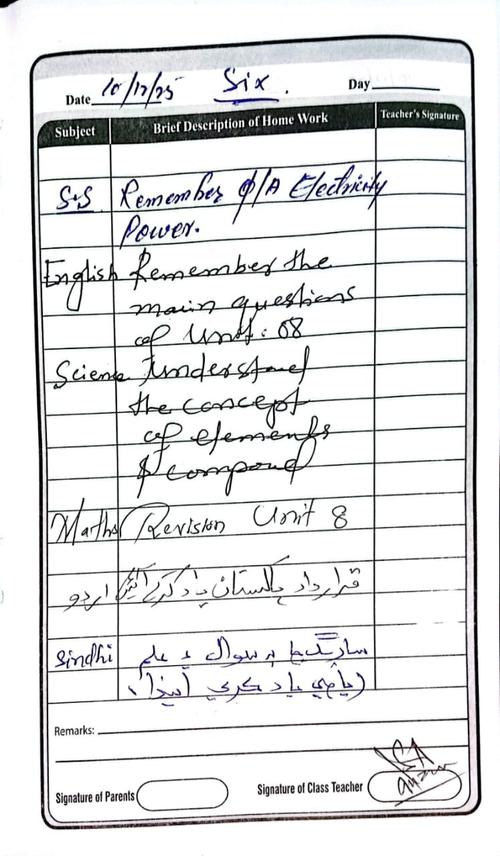 Date 10/12/25 Six. Day
Subject Brief Description of Home Work Teacher's Signature
S.S Remember Q/A Electricity
Power.
English Remember the
main questions
of Unit: 08
Science Understand
the concept
of elements
& compound
Maths Revision Unit 8
اردو قرارداد پاکستان یاد کرکے آئیں
Sindhi
ياد ڪري ايندا
Remarks:
Signature of Parents Signature of Class Teacher